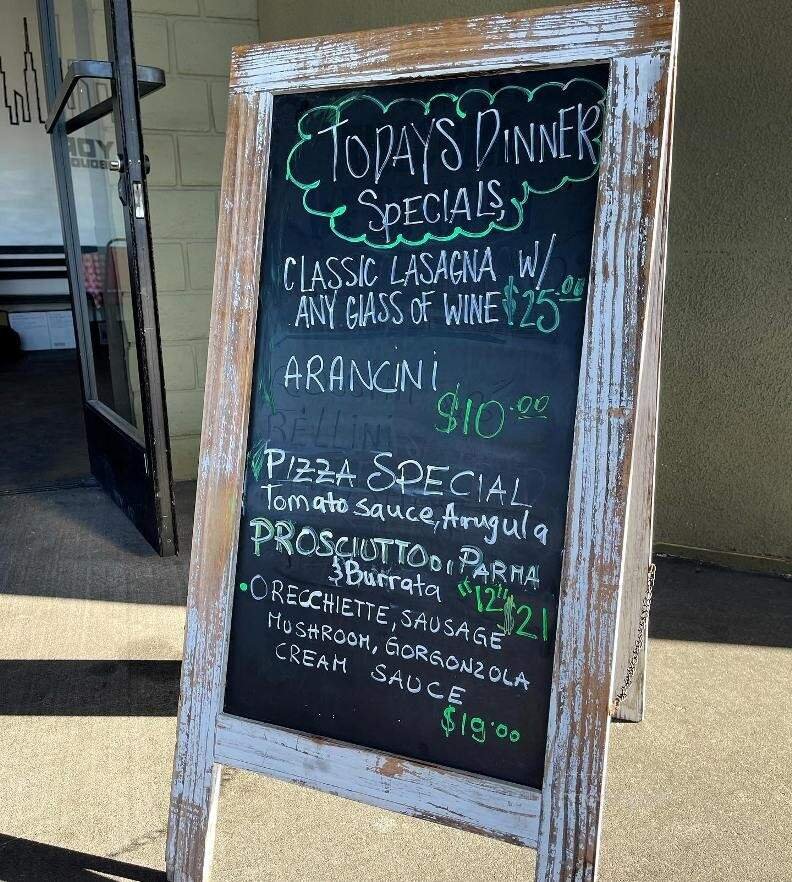 TODAYS DINNER
SPECIALS,
CLASSIC LASAGNA W/
ANY GLASS OF WINE $25.00
ARANCINI
$10.00
RELLINI
PIZZA SPECIAL
Tomato sauce, Arugula
PROSCIUTTO DI PARMA
& Burrata "12" $21
• ORECCHIETTE, SAUSAGE
MUSHROOM, GORGONZOLA
CREAM SAUCE
$19.00